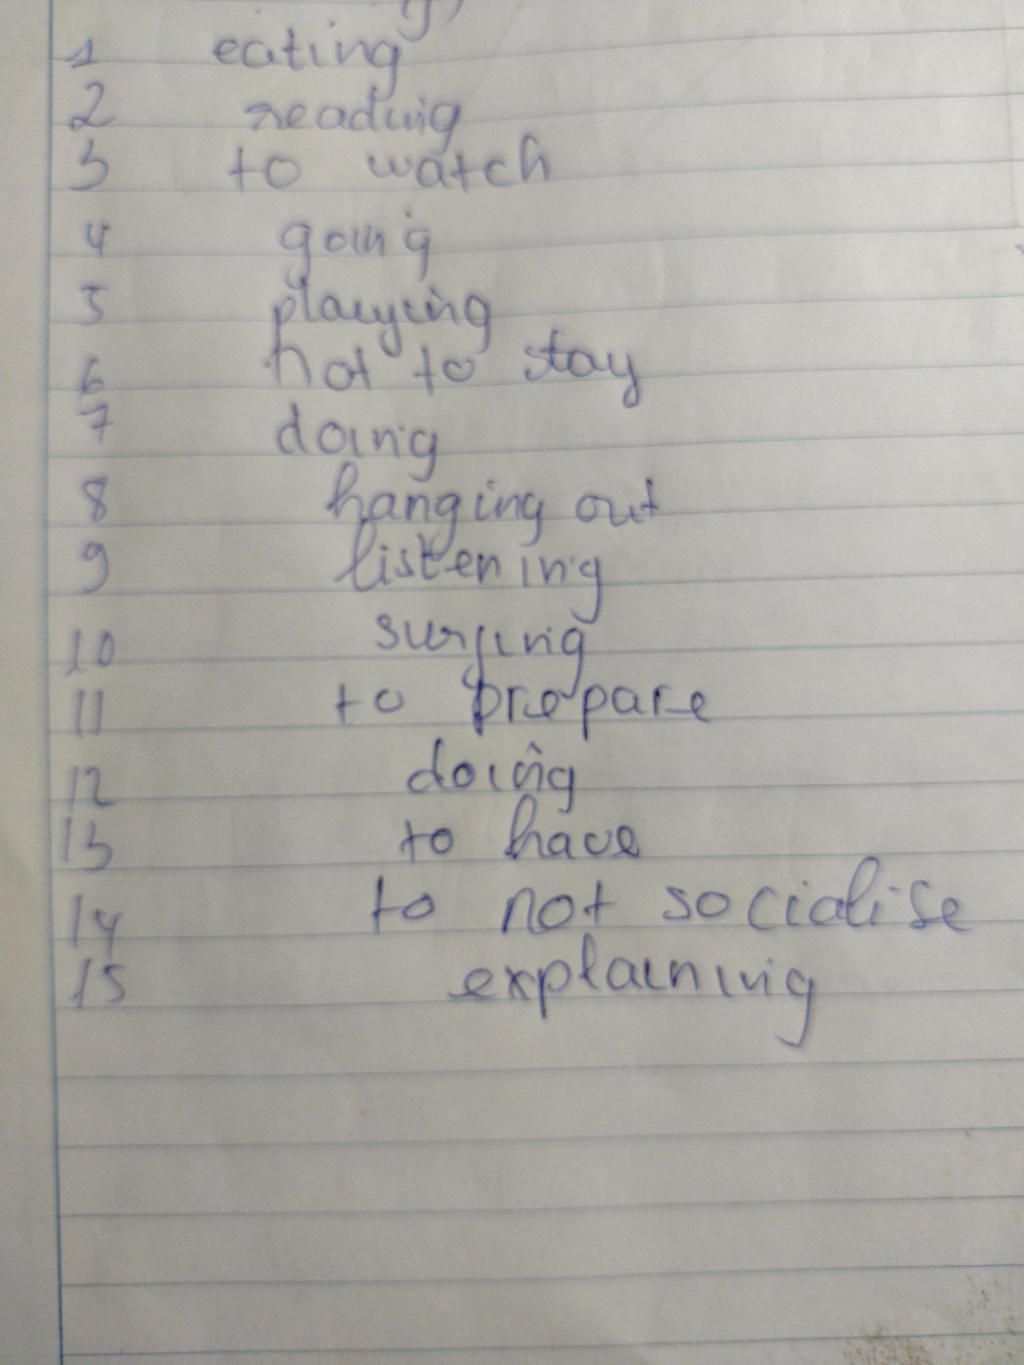 1 eating
2 reading
3 to watch
4 going
5 playing
6 not to stay
7 doing
8 hanging out
9 listening
10 surfing
11 to prepare
12 doing
13 to have
14 to not socialise
15 explaining